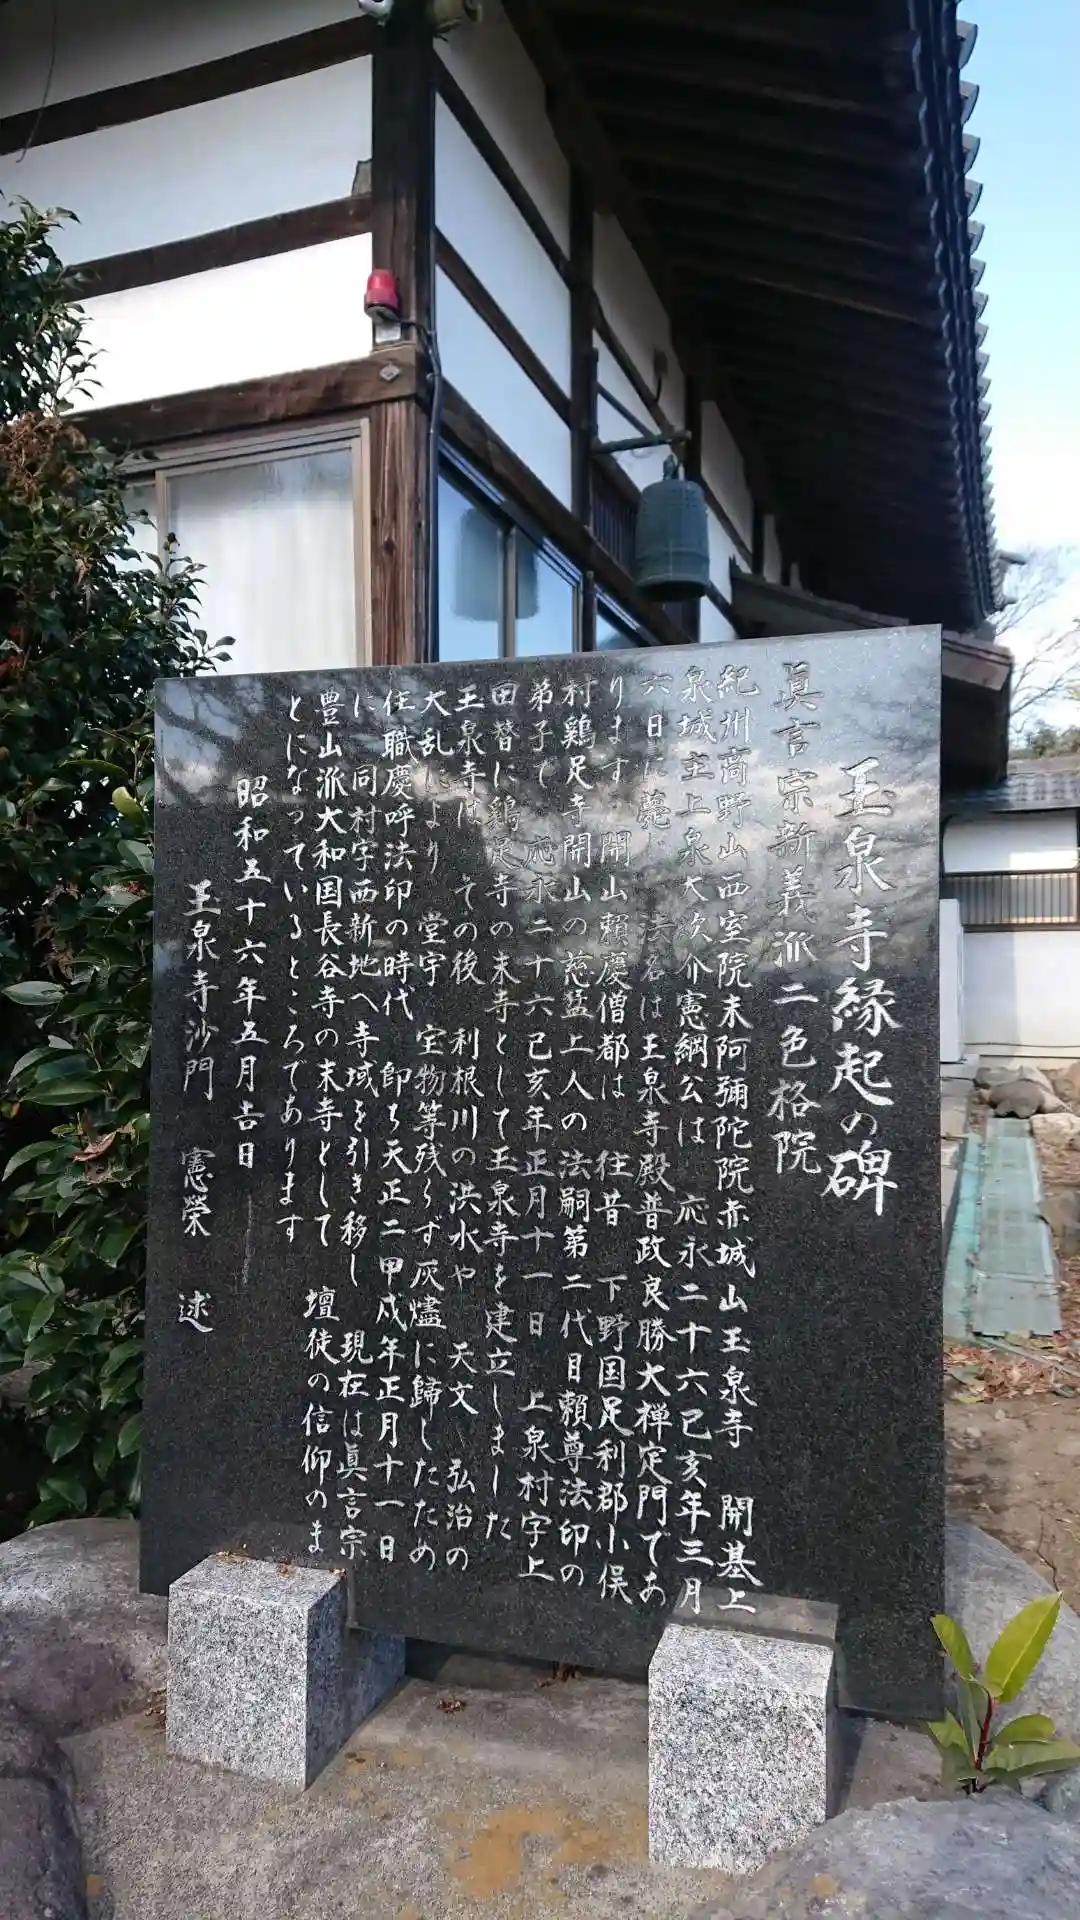 玉泉寺縁起の碑
眞言宗新義派二色格院
紀州高野山西室院末阿彌陀院赤城山玉泉寺 開基上
泉城主上泉大次介憲綱公は 応永二十六己亥年三月
六日に薨じ 法名は玉泉寺殿普政良勝大禅定門であ
ります 開山賴慶僧都は 往昔 下野国足利郡小俣
村鶏足寺開山の慈猛上人の法嗣第二代目賴尊法印の
弟子で 応永二十六己亥年正月十一日 上泉村字上
田替に鶏足寺の末寺として玉泉寺を建立しました
玉泉寺は その後 利根川の洪水や 天文〜弘治の
大乱により 堂宇 宝物等残らず灰燼に歸したため
住職慶呼法印の時代 即ち天正二甲戌年正月十一日
に 同村字西新地へ寺域を引き移し 現在は眞言宗
豊山派大和国長谷寺の末寺として 壇徒の信仰のま
とになっているところであります
昭和五十六年五月吉日
玉泉寺沙門 憲榮 述